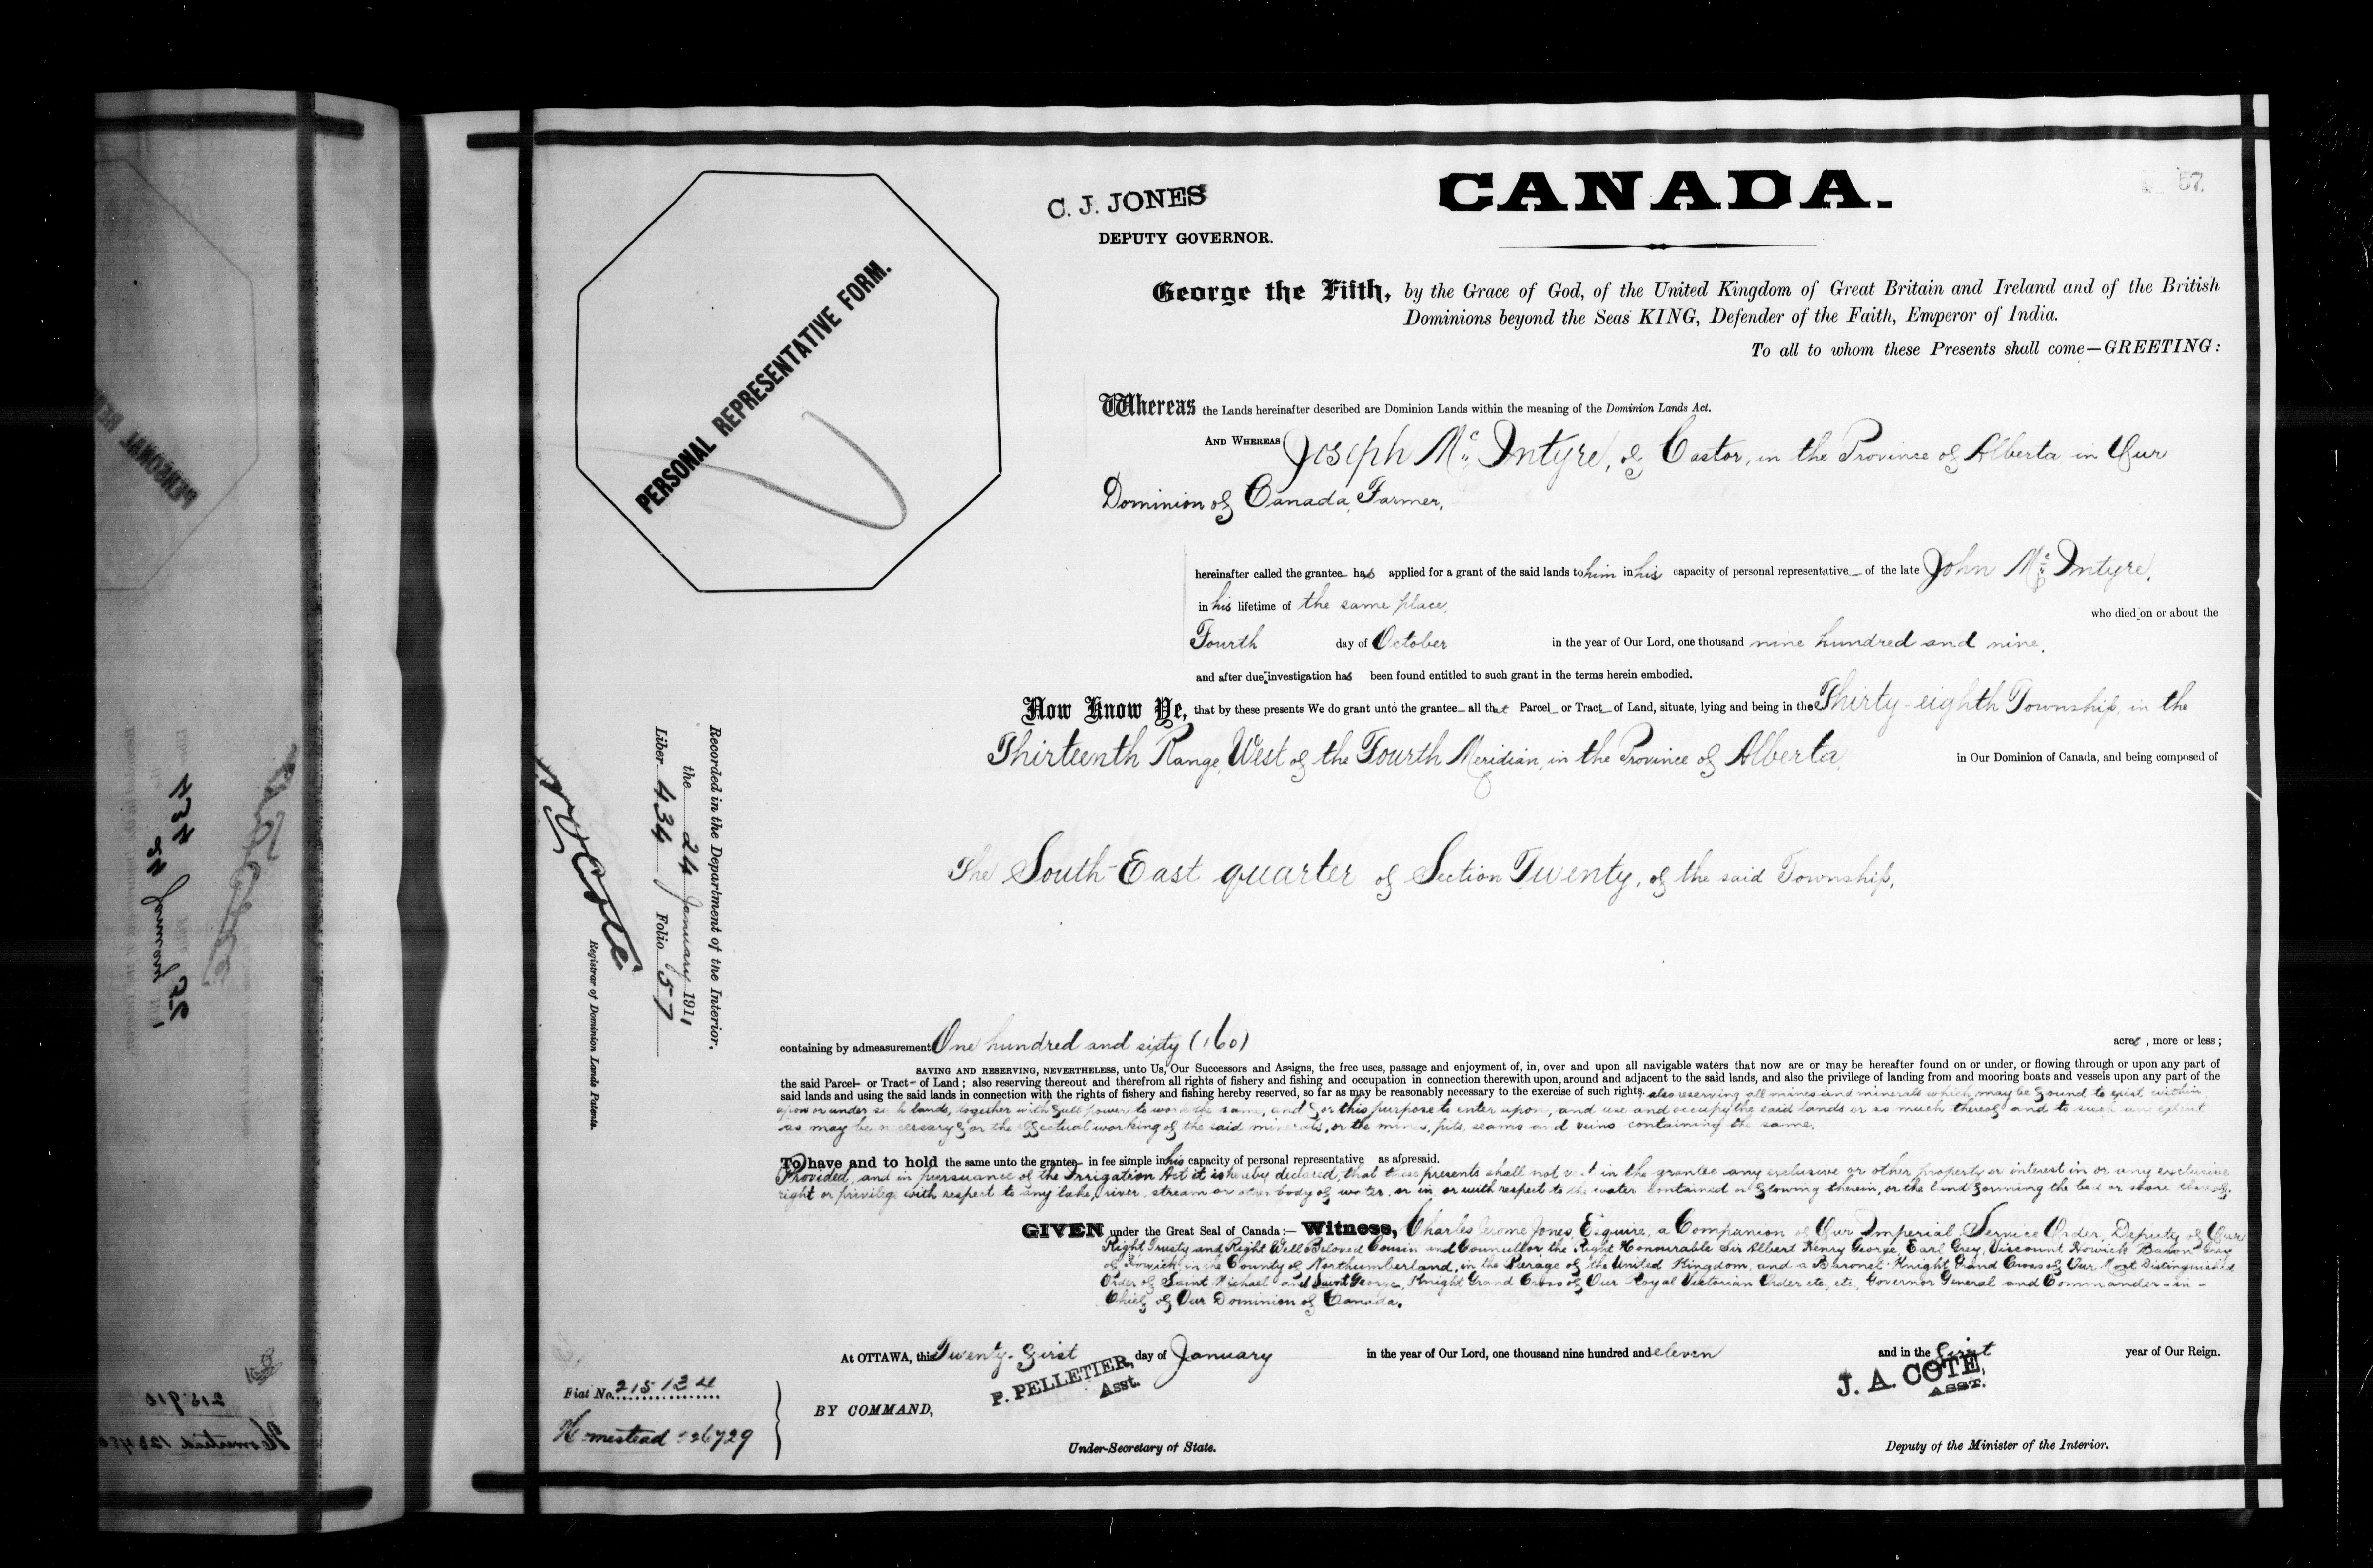 C. J. JONES
DEPUTY GOVERNOR.
CANADA.
57.
PERSONAL REPRESENTATIVE FORM.
George the Fifth, by the Grace of God, of the United Kingdom of Great Britain and Ireland and of the British
Dominions beyond the Seas KING, Defender of the Faith, Emperor of India.
To all to whom these Presents shall come—GREETING:
Whereas the Lands hereinafter described are Dominion Lands within the meaning of the Dominion Lands Act.
AND WHEREAS Joseph McIntyre, of Castor, in the Province of Alberta in Our
Dominion of Canada, Farmer,
hereinafter called the grantee has applied for a grant of the said lands to him in his capacity of personal representative of the late John McIntyre,
in his lifetime of the same place, who died on or about the
Fourth day of October in the year of Our Lord, one thousand nine hundred and nine,
and after due investigation has been found entitled to such grant in the terms herein embodied.
Now Know Ye, that by these presents We do grant unto the grantee all that Parcel or Tract of Land, situate, lying and being in the Thirty-eighth Township, in the
Thirteenth Range, West of the Fourth Meridian, in the Province of Alberta, in Our Dominion of Canada, and being composed of
The South-East quarter of Section Twenty, of the said Township,
containing by admeasurement One hundred and sixty (160) acres, more or less;
SAVING AND RESERVING, NEVERTHELESS, unto Us, Our Successors and Assigns, the free uses, passage and enjoyment of, in, over and upon all navigable waters that now are or may be hereafter found on or under, or flowing through or upon any part of
the said Parcel or Tract of Land; also reserving thereout and therefrom all rights of fishery and fishing and occupation in connection therewith upon, around and adjacent to the said lands, and also the privilege of landing from and mooring boats and vessels upon any part of the
said lands and using the said lands in connection with the rights of fishery and fishing hereby reserved, so far as may be reasonably necessary to the exercise of such rights, also reserving all mines and minerals which may be found to exist within,
upon or under such lands, together with full power to work the same, and for this purpose to enter upon, and use and occupy the said lands or so much thereof and to such an extent
as may be necessary for the effectual working of the said minerals, or the mines, pits, seams and veins containing the same.
To have and to hold the same unto the grantee in fee simple in his capacity of personal representative as aforesaid.
Provided, and in pursuance of the Irrigation Act it is hereby declared, that these presents shall not vest in the grantee any exclusive or other property or interest in or any exclusive
right or privilege with respect to any lake, river, stream or other body of water, or in, or with respect to the water contained or flowing therein, or the land forming the bed or shore thereof.
GIVEN under the Great Seal of Canada:— Witness, Charles Jerome Jones, Esquire, a Companion of Our Imperial Service Order, Deputy of Our
Right Trusty and Right Well Beloved Cousin and Councillor, the Right Honourable Sir Albert Henry George, Earl Grey, Viscount Howick, Baron Grey
of Howick, in the County of Northumberland, in the Peerage of the United Kingdom, and a Baronet: Knight Grand Cross of Our Most Distinguished
Order of Saint Michael and Saint George, Knight Grand Cross of Our Royal Victorian Order etc, etc, Governor General and Commander-in-
Chief of Our Dominion of Canada.
At OTTAWA, this Twenty-first day of January in the year of Our Lord, one thousand nine hundred and eleven and in the first year of Our Reign.
P. PELLETIER,
Asst.
J. A. COTE,
ASST.
BY COMMAND,
Under-Secretary of State.
Deputy of the Minister of the Interior.
Fiat No. 215134
Homestead 26729
Recorded in the Department of the Interior,
the 24 January 1911
Liber 434 Folio 57
N. O. Coté
Registrar of Dominion Lands Patents.